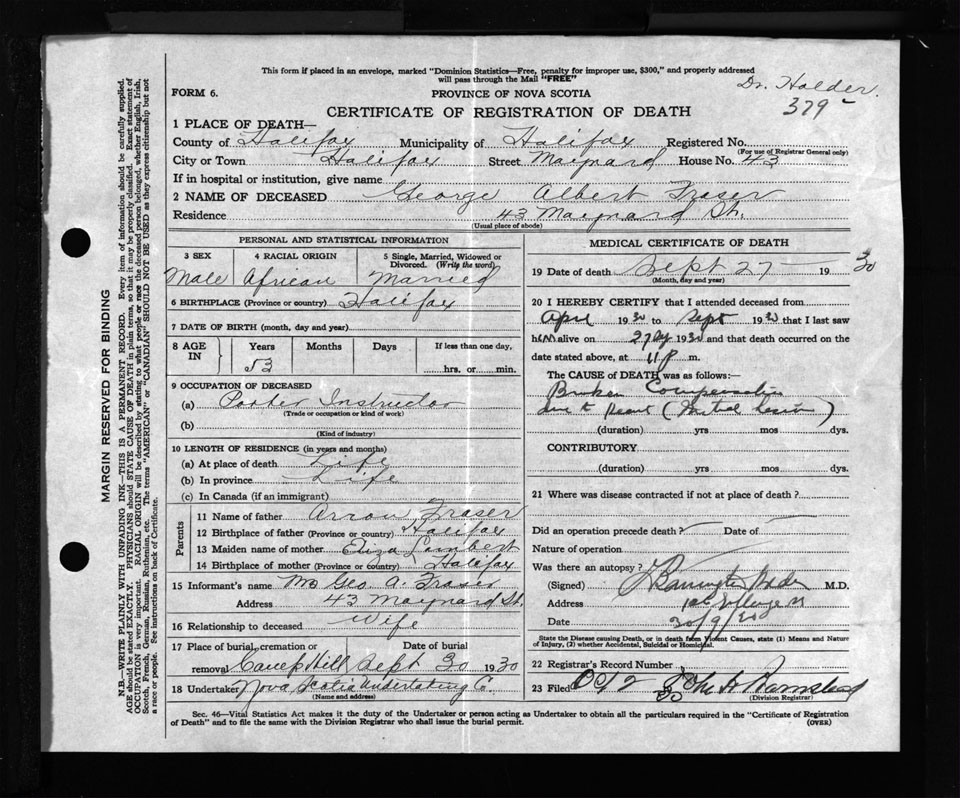 This form if placed in an envelope, marked "Dominion Statistics—Free, penalty for improper use, $300," and properly addressed
will pass through the Mail "FREE"
Dr. Holder
379
FORM 6.
PROVINCE OF NOVA SCOTIA
CERTIFICATE OF REGISTRATION OF DEATH
1 PLACE OF DEATH—
County of Halifax Municipality of Halifax Registered No.
(For use of Registrar General only)
City or Town Halifax Street Maynard House No. 43
If in hospital or institution, give name
2 NAME OF DECEASED George Albert Fraser
Residence 43 Maynard St.
(Usual place of abode)
MARGIN RESERVED FOR BINDING
N.B.—WRITE PLAINLY WITH UNFADING INK—THIS IS A PERMANENT RECORD. Every item of information should be carefully supplied.
AGE should be stated EXACTLY. PHYSICIANS should STATE CAUSE OF DEATH in plain terms, so that it may be properly classified. Exact statement of
OCCUPATION is very important. RACIAL ORIGIN will be described by stating to what people or race the deceased person belonged, whether English, Irish,
Scotch, French, German, Russian, Ruthenian, etc. The terms "AMERICAN" or "CANADIAN" SHOULD NOT BE USED as they express citizenship but not
a race or people. See instructions on back of Certificate.
PERSONAL AND STATISTICAL INFORMATION
3 SEX 4 RACIAL ORIGIN 5 Single, Married, Widowed or
Divorced. (Write the word)
Male African Married
6 BIRTHPLACE (Province or country) Halifax
7 DATE OF BIRTH (month, day and year)
8 AGE IN Years Months Days If less than one day,
53 hrs. or min.
9 OCCUPATION OF DECEASED
(a) Porter Instructor
(Trade or occupation or kind of work)
(b)
(Kind of industry)
10 LENGTH OF RESIDENCE (in years and months)
(a) At place of death Life
(b) In province Life
(c) In Canada (if an immigrant)
Parents
11 Name of father Arron Fraser
12 Birthplace of father (Province or country) Halifax
13 Maiden name of mother Eliza Lambert
14 Birthplace of mother (Province or country) Halifax
15 Informant's name Mrs Geo A. Fraser
Address 43 Maynard St.
16 Relationship to deceased Wife
17 Place of burial, cremation or Date of burial
removal Camp Hill Sept 30 1930
18 Undertaker Nova Scotia Undertaking Co.
(Name and address)
MEDICAL CERTIFICATE OF DEATH
19 Date of death Sept 27 19 30
(Month, day and year)
20 I HEREBY CERTIFY that I attended deceased from
April 1930 to Sept 1930 that I last saw
him alive on 27 1930 and that death occurred on the
date stated above, at 11 P m.
The CAUSE OF DEATH was as follows:—
Broken Compensation
due to Heart (Mitral lesion)
(duration) yrs mos dys.
CONTRIBUTORY
(duration) yrs mos dys.
21 Where was disease contracted if not at place of death?
Did an operation precede death? Date of
Nature of operation
Was there an autopsy?
(Signed) M.D.
Address
Date 30/9/30
State the Disease causing Death, or in death from Violent Causes, state (1) Means and Nature
of Injury, (2) whether Accidental, Suicidal or Homicidal.
22 Registrar's Record Number
23 Filed Oct 2 30 John H
(Division Registrar)
Sec. 46—Vital Statistics Act makes it the duty of the Undertaker or person acting as Undertaker to obtain all the particulars required in the "Certificate of Registration
of Death" and to file the same with the Division Registrar who shall issue the burial permit. (OVER)